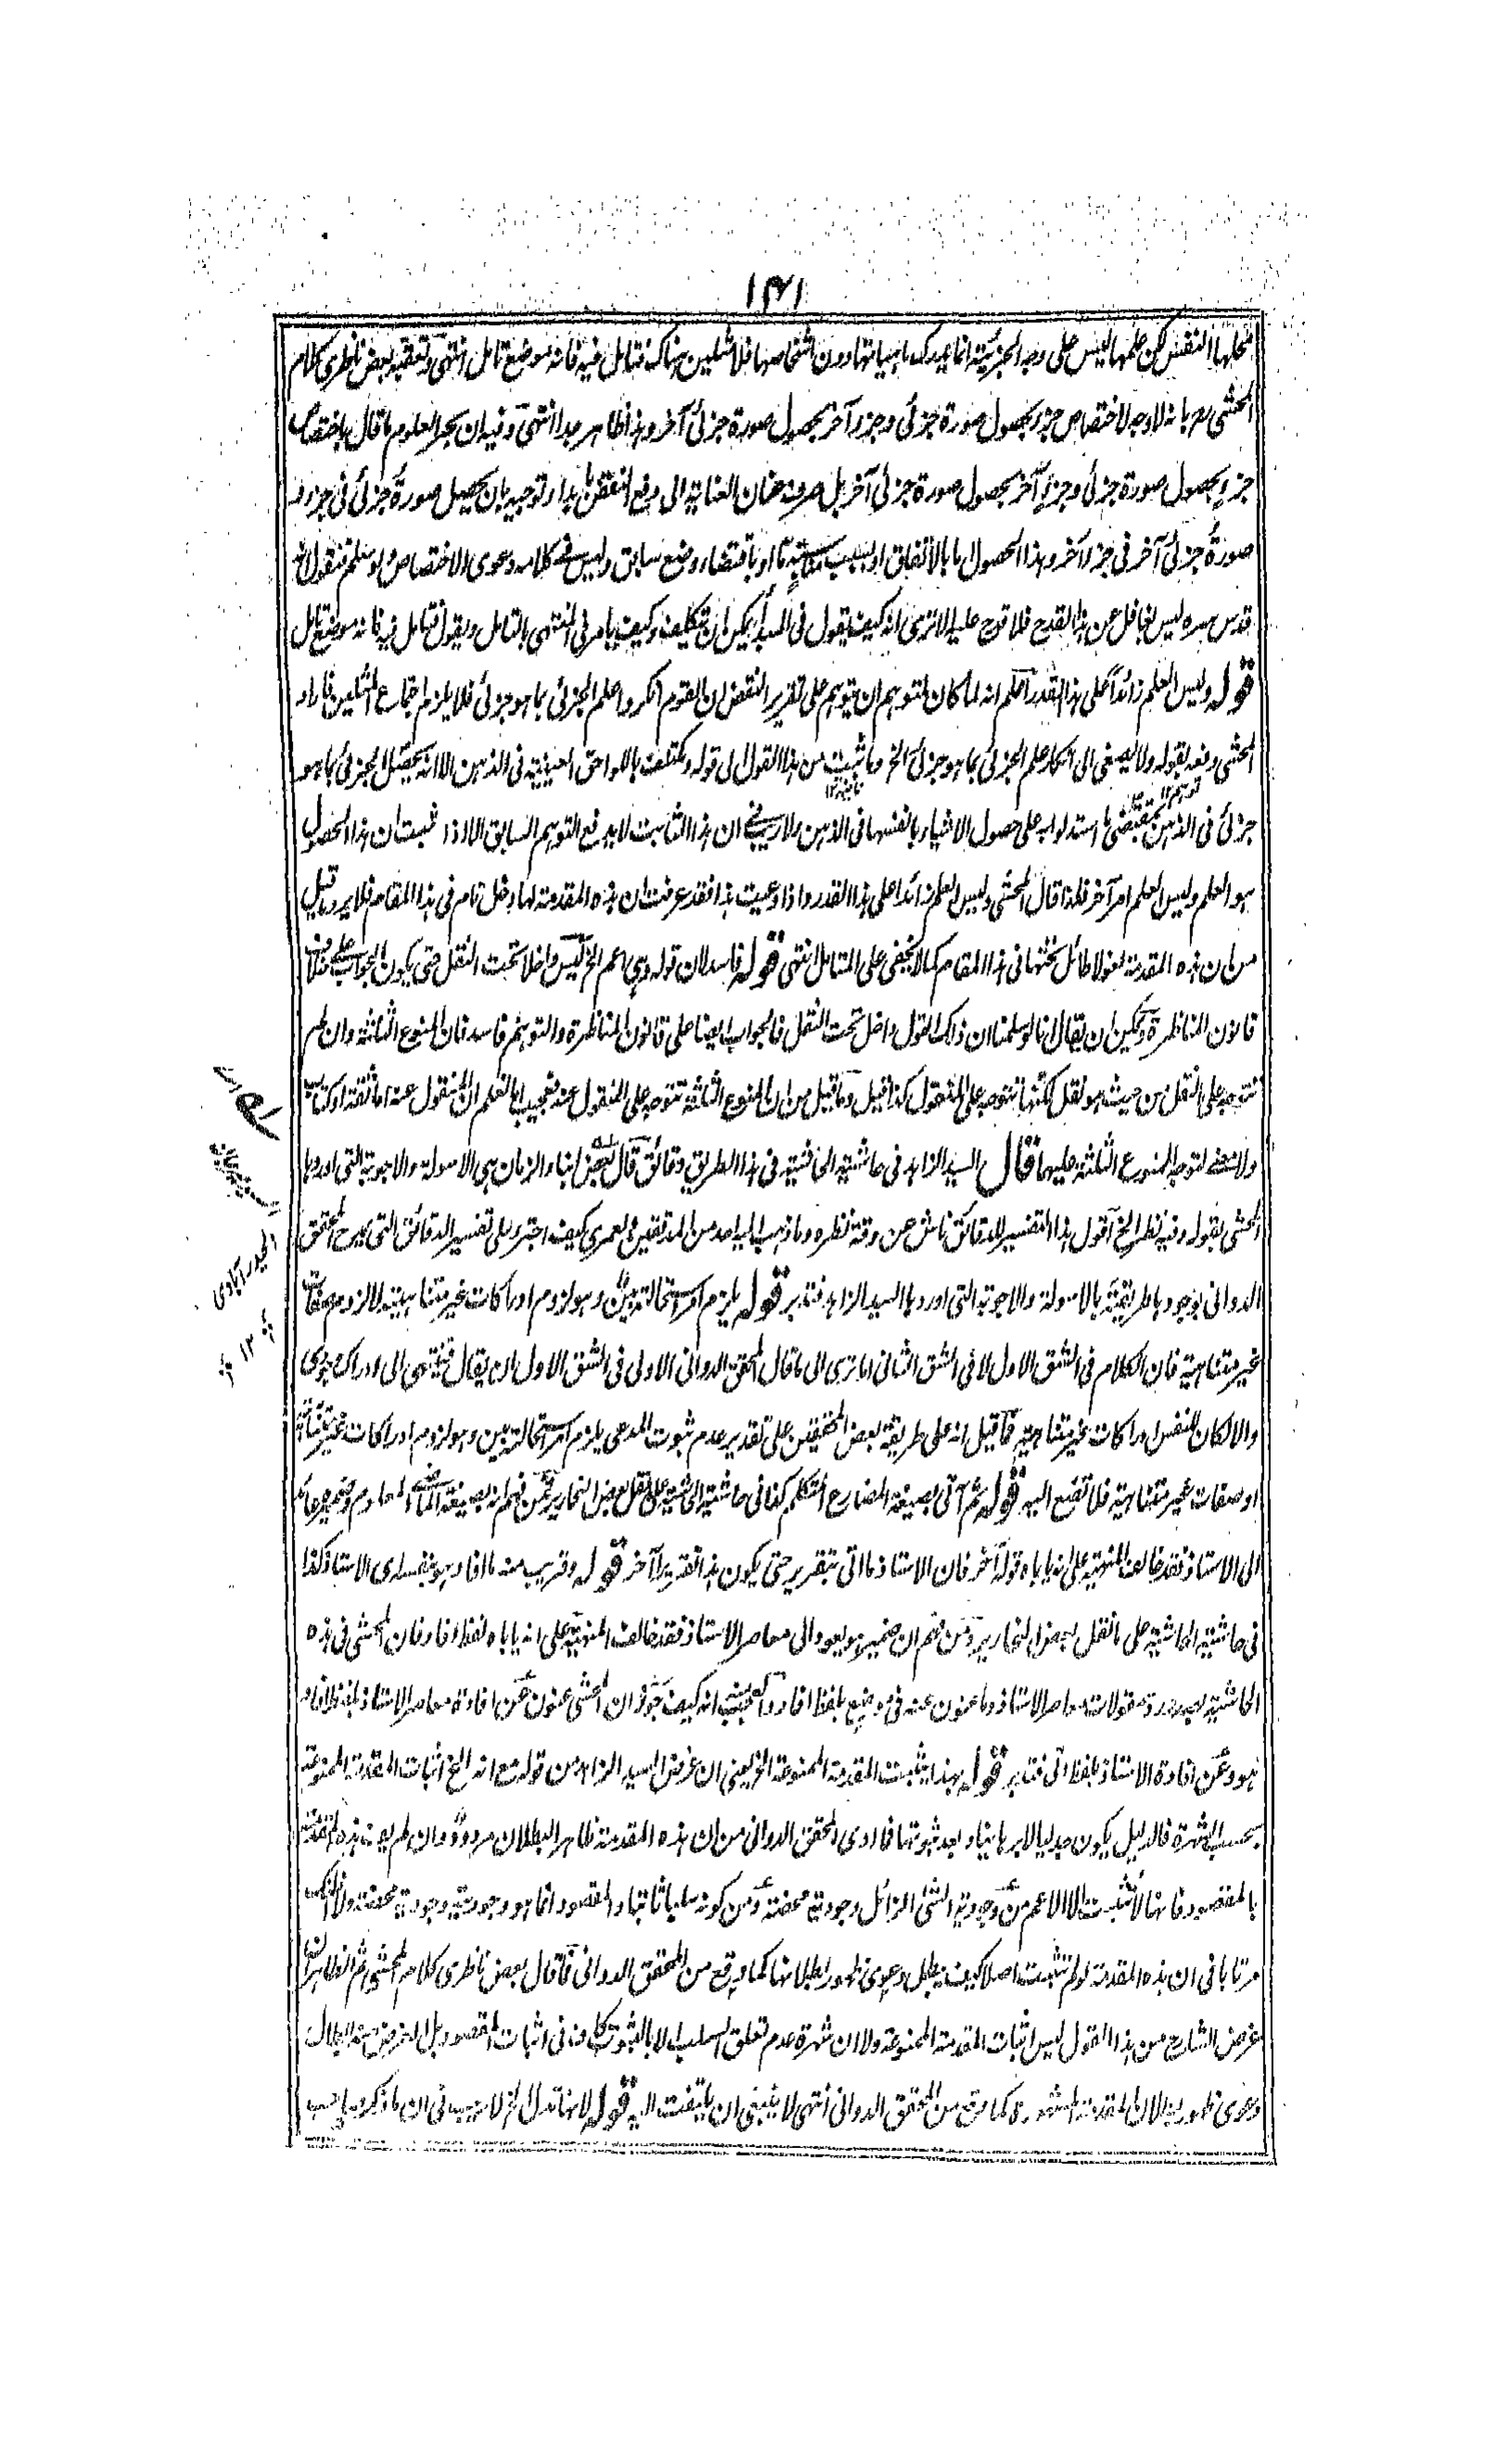 ١٣١
محلها النفس لكن علمها ليس على وجه الجزئية انما يدرك ماهياتها دون اشخاصها فلا مثلين هناك فتامل فيه فانه موضع تامل انتهى وتعقبه بعض ناظرى كلام
المحشى بانه لا وجه لاختصاص جزء بحصول صورة جزئى وجزء آخر بحصول صورة جزئى آخر وهذا ظاهر جدا انتهى وفيه ان بحر العلوم ما قال باختصاص
جزء بحصول صورة جزئى وجزء آخر بحصول صورة جزئى آخر بل صرف عنان العناية الى دفع النقض بابداء توجيه بان يحصل صورة جزئى فى جزء و
صورة جزئى آخر فى جزء آخر وهذا الحصول اما بالاتفاق او بسبب مناسبة ما او باقتضاء وضع سابق وليس فى كلامه دعوى الاختصاص ولو سلم فنقول انه
قدس سره ليس بغافل عن هذا القدح فلا قدح عليه الا ترى انه كيف يقول فى المبدأ يمكن ان يتكلف وكيف يامر فى المنتهى بالتامل ويقول فتامل فيه فانه موضع تامل
قوله وليس العلم زائدا على هذا القدر اعلم انه لما كان لمتوهم ان يتوهم على تقرير النقض ان القوم انكروا علم الجزئى بما هو جزئى فلا يلزم اجتماع المثلين فاراد
المحشى دفعه بقوله ولا يصغى الى انكار علم الجزئى بما هو جزئى الخ وما ثبت من هذا القول الى قوله ومكتنف باللواحق العينية فى الذهن الا انه يحصل الجزئى بما هو
جزئى فى الذهن بمقتضى ما استدلوا به على حصول الاشياء بانفسها فى الذهن ولا ريب فى ان هذا الثابت لا يدفع التوهم السابق الا اذا ثبت ان هذا الحصول
هو العلم وليس العلم امرا آخر فلذا قال المحشى وليس العلم زائدا على هذا القدر واذا وعيت هذا فقد عرفت ان هذه المقدمة لها دخل تام فى هذا المقام فلا يرد ما قيل
من ان هذه المقدمة لغو لا طائل تحتها فى هذا المقام كما لا يخفى على المتامل انتهى قوله فاسد لان قوله وهى اعم الخ ليس داخلا تحت النقل حتى يكون الجواب على خلاف
قانون المناظرة ويمكن ان يقال انا لو سلمنا ان ذلك القول داخل تحت النقل فالجواب ايضا على قانون المناظرة والتوهم فاسد فان المنوع الثلاثة وان لم
تتوجه على النقل من حيث هو نقل لكنها تتوجه على المنقول كذا قيل وما قيل من ان المنوع الثلاثة تتوجه على المنقول عنه فعجيب اما تعلم ان المنقول عنه اما ثقة او كتاب
ولا معنى لتوجه المنوع الثلثة عليهما قال السيد الزاهد فى حاشية الحاشية فى هذا الطريق دقائق قال بعض ابناء الزمان هى الاسولة والاجوبة التى اوردها
المحشى بقوله وفيه نظر الخ اقول هذا التفسير للدقائق ناش عن دقة نظره وما ذهب اليه احد من المدققين ولعمرى كيف اجترء على تفسير الدقائق التى يصرح المحقق
الدوانى بوجودها بطريقته بالاسولة والاجوبة التى اوردها السيد الزاهد فتدبر قوله يلزم امر استحالته بين وهو لزوم ادراكات غير متناهية لا لزوم صفات
غير متناهية فان الكلام فى الشق الاول لا فى الشق الثانى اما ترى الى ما قال المحقق الدوانى الاولى فى الشق الاول ان يقال فينتهى الى ادراك وجودى
والا لكان للنفس ادراكات غير متناهية فما قيل انه على طريقة بعض المحققين على تقدير عدم ثبوت المدعى يلزم امر استحالته بين وهو لزوم ادراكات غير متناهية
او صفات غير متناهية فلا تصغ اليه قوله ثم آتى بصيغة المضارع المتكلم كذا فى حاشية الحاشية على نقل بعض النحارير فمن فهم انه بصيغة الماضى المعلوم وضميره عائد
الى الاستاذ فقد خالف المنهية على انه ياباه قوله آخر فان الاستاذ ما اتى بتقرير حتى يكون هذا تقريرا آخر قوله وقريب منه ما افاد هو بنفسه اى الاستاذ كذا
فى حاشية الحاشية على ما نقل بعض النحارير ومن فهم ان ضمير هو يعود الى معاصر الاستاذ فقد خالف المنهية على انه ياباه لفظ افاد فان المحشى فى هذه
الحاشية بصدد رد مقولات معاصر الاستاذ وما عنون عنه فى موضع بلفظ افاد والعجب انه كيف جوز ان المحشى عنون عن افادة معاصر الاستاذ بلفظ افاد
هو وعن افادة الاستاذ بلفظ اتى فتدبر قوله بهذا يثبت المقدمة الممنوعة الخ يعنى ان غرض السيد الزاهد من قوله مع انه الخ اثبات المقدمة الممنوعة
بحسب الشهرة فالدليل يكون جدليا لا برهانيا وبعد ثبوتها فما ادعى المحقق الدوانى من ان هذه المقدمة ظاهر البطلان مردود وان لم يعن هذه المقدمة
بالمقصود فانها لا تثبت الا الاعم من وجودية الشئ الزائل وجودية محضة ومن كونه سلبا ثابتا والمقصود انما هو وجوديته وجودية محضة ولا اظنك
مرتابا فى ان هذه المقدمة لو لم تثبت اصلا كيف يبطل دعوى ظهور بطلانها كما وقع من المحقق الدوانى فما قال بعض ناظرى كلام المحشى ثم الظاهر ان
غرض الشارح من هذا القول ليس اثبات المقدمة الممنوعة ولا ان شهرة عدم تعلق السلب الا بالثبوت كاف فى اثبات المقصود بل الغرض منه ابطال
دعوى ظهور بطلان المقدمة المشهورة كما وقع من المحقق الدوانى انتهى لا ينبغى ان يلتفت اليه قوله لانها تدل الخ لا ريب فى ان ما ذكره بحسب
الحيدرآبادى
١٢